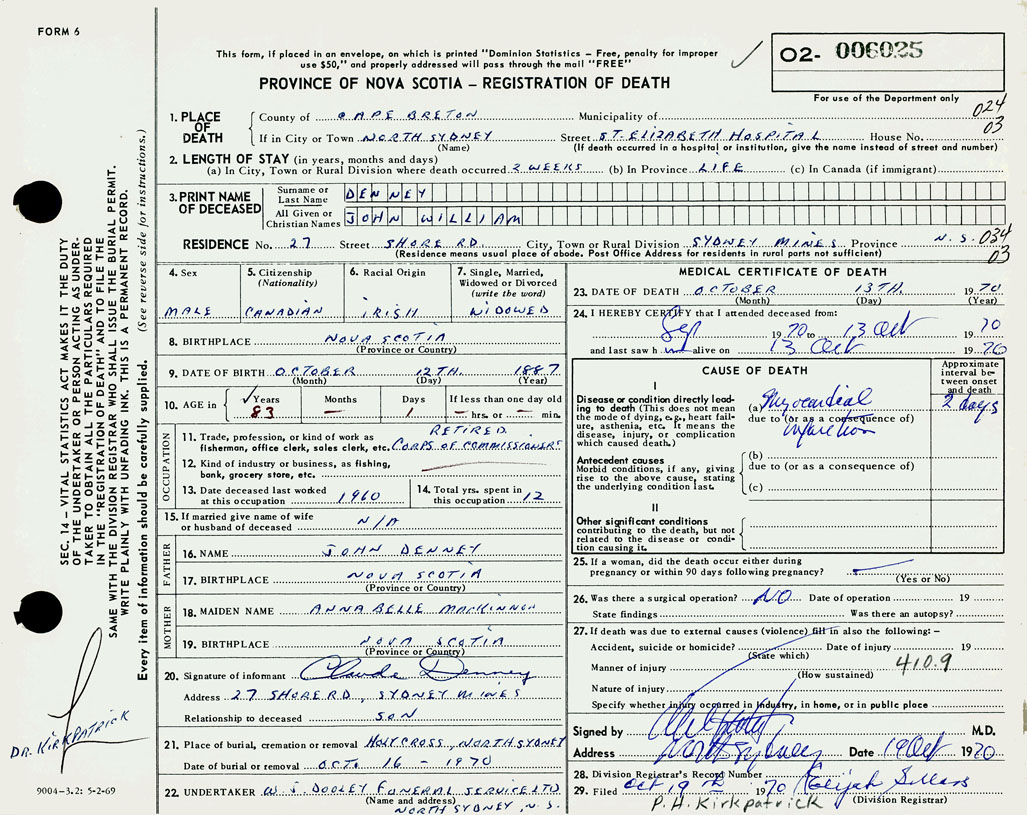 FORM 6
This form, if placed in an envelope, on which is printed "Dominion Statistics – Free, penalty for improper
use $50," and properly addressed will pass through the mail "FREE"
O2- 006025
For use of the Department only
PROVINCE OF NOVA SCOTIA – REGISTRATION OF DEATH
024
03
1. PLACE OF DEATH
County of CAPE BRETON Municipality of
If in City or Town NORTH SYDNEY Street ST. ELIZABETH HOSPITAL House No.
(Name) (If death occurred in a hospital or institution, give the name instead of street and number)
2. LENGTH OF STAY (in years, months and days)
(a) In City, Town or Rural Division where death occurred 2 WEEKS (b) In Province LIFE (c) In Canada (if immigrant)
3. PRINT NAME OF DECEASED
Surname or Last Name DENNEY
All Given or Christian Names JOHN WILLIAM
RESIDENCE No. 27 Street SHORE RD. City, Town or Rural Division SYDNEY MINES Province N.S. 034
03
(Residence means usual place of abode. Post Office Address for residents in rural parts not sufficient)
4. Sex
MALE
5. Citizenship
(Nationality)
CANADIAN
6. Racial Origin
IRISH
7. Single, Married,
Widowed or Divorced
(write the word)
WIDOWED
8. BIRTHPLACE NOVA SCOTIA
(Province or Country)
9. DATE OF BIRTH OCTOBER 12TH. 1887
(Month) (Day) (Year)
10. AGE in Years Months Days If less than one day old
83 — 1 — hrs. or — min.
OCCUPATION
11. Trade, profession, or kind of work as
fisherman, office clerk, sales clerk, etc. RETIRED CORPS OF COMMISSIONERS
12. Kind of industry or business, as fishing,
bank, grocery store, etc.
13. Date deceased last worked
at this occupation 1960
14. Total yrs. spent in
this occupation 12
15. If married give name of wife
or husband of deceased N/A
FATHER
16. NAME JOHN DENNEY
17. BIRTHPLACE NOVA SCOTIA
(Province or Country)
MOTHER
18. MAIDEN NAME ANNA BELLE MACKINNON
19. BIRTHPLACE NOVA SCOTIA
(Province or Country)
20. Signature of informant Claude Denney
Address 27 SHORE RD, SYDNEY MINES
Relationship to deceased SON
21. Place of burial, cremation or removal HOLY CROSS, NORTH SYDNEY
Date of burial or removal OCT. 16 – 1970
22. UNDERTAKER W. J. DOOLEY FUNERAL SERVICE LTD
(Name and address)
NORTH SYDNEY, N.S.
MEDICAL CERTIFICATE OF DEATH
23. DATE OF DEATH OCTOBER 13TH. 1970
(Month) (Day) (Year)
24. I HEREBY CERTIFY that I attended deceased from:
Sep 1970 to 13 Oct 1970
and last saw h im alive on 13 Oct 1970
CAUSE OF DEATH
Approximate
interval be-
tween onset
and death
I
Disease or condition directly lead-
ing to death (This does not mean
the mode of dying, e.g., heart fail-
ure, asthenia, etc. It means the
disease, injury, or complication
which caused death.)
(a) Myocardial
due to (or as a consequence of)
infarction
2 days
Antecedent causes
Morbid conditions, if any, giving
rise to the above cause, stating
the underlying condition last.
(b)
due to (or as a consequence of)
(c)
II
Other significant conditions
contributing to the death, but not
related to the disease or condi-
tion causing it.
25. If a woman, did the death occur either during
pregnancy or within 90 days following pregnancy?
(Yes or No)
26. Was there a surgical operation? NO Date of operation 19
State findings Was there an autopsy?
27. If death was due to external causes (violence) fill in also the following: –
Accident, suicide or homicide? Date of injury 19
(State which)
Manner of injury 410.9
(How sustained)
Nature of injury
Specify whether injury occurred in Industry, in home, or in public place
Signed by M.D.
Address North Sydney Date 19 Oct 1970
28. Division Registrar's Record Number
29. Filed Oct 19th 1970 Elijah Sellars
P. H. Kirkpatrick (Division Registrar)
SEC. 14 – VITAL STATISTICS ACT MAKES IT THE DUTY
OF THE UNDERTAKER OR PERSON ACTING AS UNDER-
TAKER TO OBTAIN ALL THE PARTICULARS REQUIRED
IN THE "REGISTRATION OF DEATH" AND TO FILE THE
SAME WITH THE DIVISION REGISTRAR WHO SHALL ISSUE THE BURIAL PERMIT.
WRITE PLAINLY WITH UNFADING INK. THIS IS A PERMANENT RECORD.
Every item of information should be carefully supplied. (See reverse side for instructions.)
DR. KIRKPATRICK
9004-3.2: 5-2-69